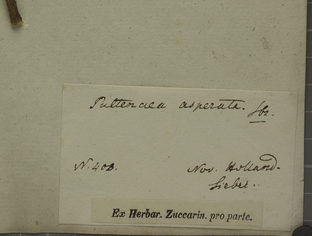 Pultenaea asperata. Sbr.
N. 403. Nov. Holland.
Sieber.
Ex Herbar. Zuccarin. pro parte.